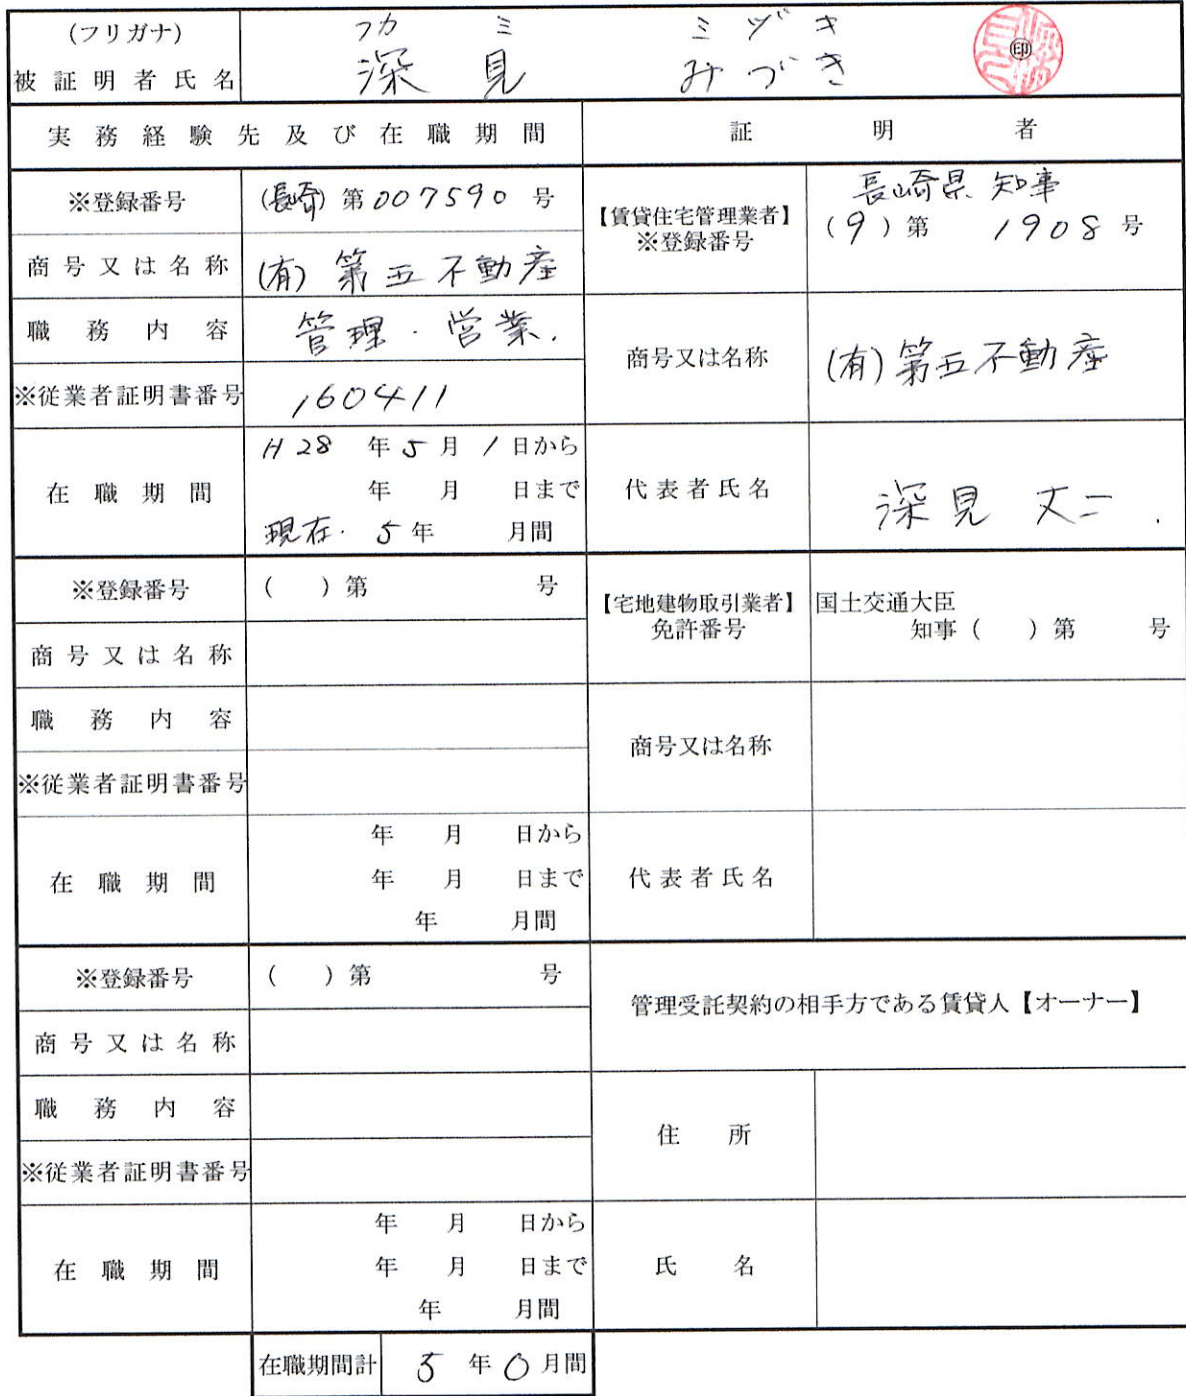 (フリガナ) フカ ミ ミヅキ
被証明者氏名 深見 みづき ㊞
実務経験先及び在職期間 証明者
※登録番号 (長崎) 第007590号
【賃貸住宅管理業者】
※登録番号
長崎県 知事
(9)第 1908号
商号又は名称 (有)第五不動産
職務内容 管理・営業.
商号又は名称 (有)第五不動産
※従業者証明書番号 160411
在職期間
H28年5月1日から
年 月 日まで
現在. 5年 月間
代表者氏名 深見 丈二.
※登録番号 ( )第 号
【宅地建物取引業者】
免許番号
国土交通大臣
知事( )第 号
商号又は名称
職務内容
商号又は名称
※従業者証明書番号
在職期間
年 月 日から
年 月 日まで
年 月間
代表者氏名
※登録番号 ( )第 号
管理受託契約の相手方である賃貸人【オーナー】
商号又は名称
職務内容
住所
※従業者証明書番号
在職期間
年 月 日から
年 月 日まで
年 月間
氏名
在職期間計 5年0月間